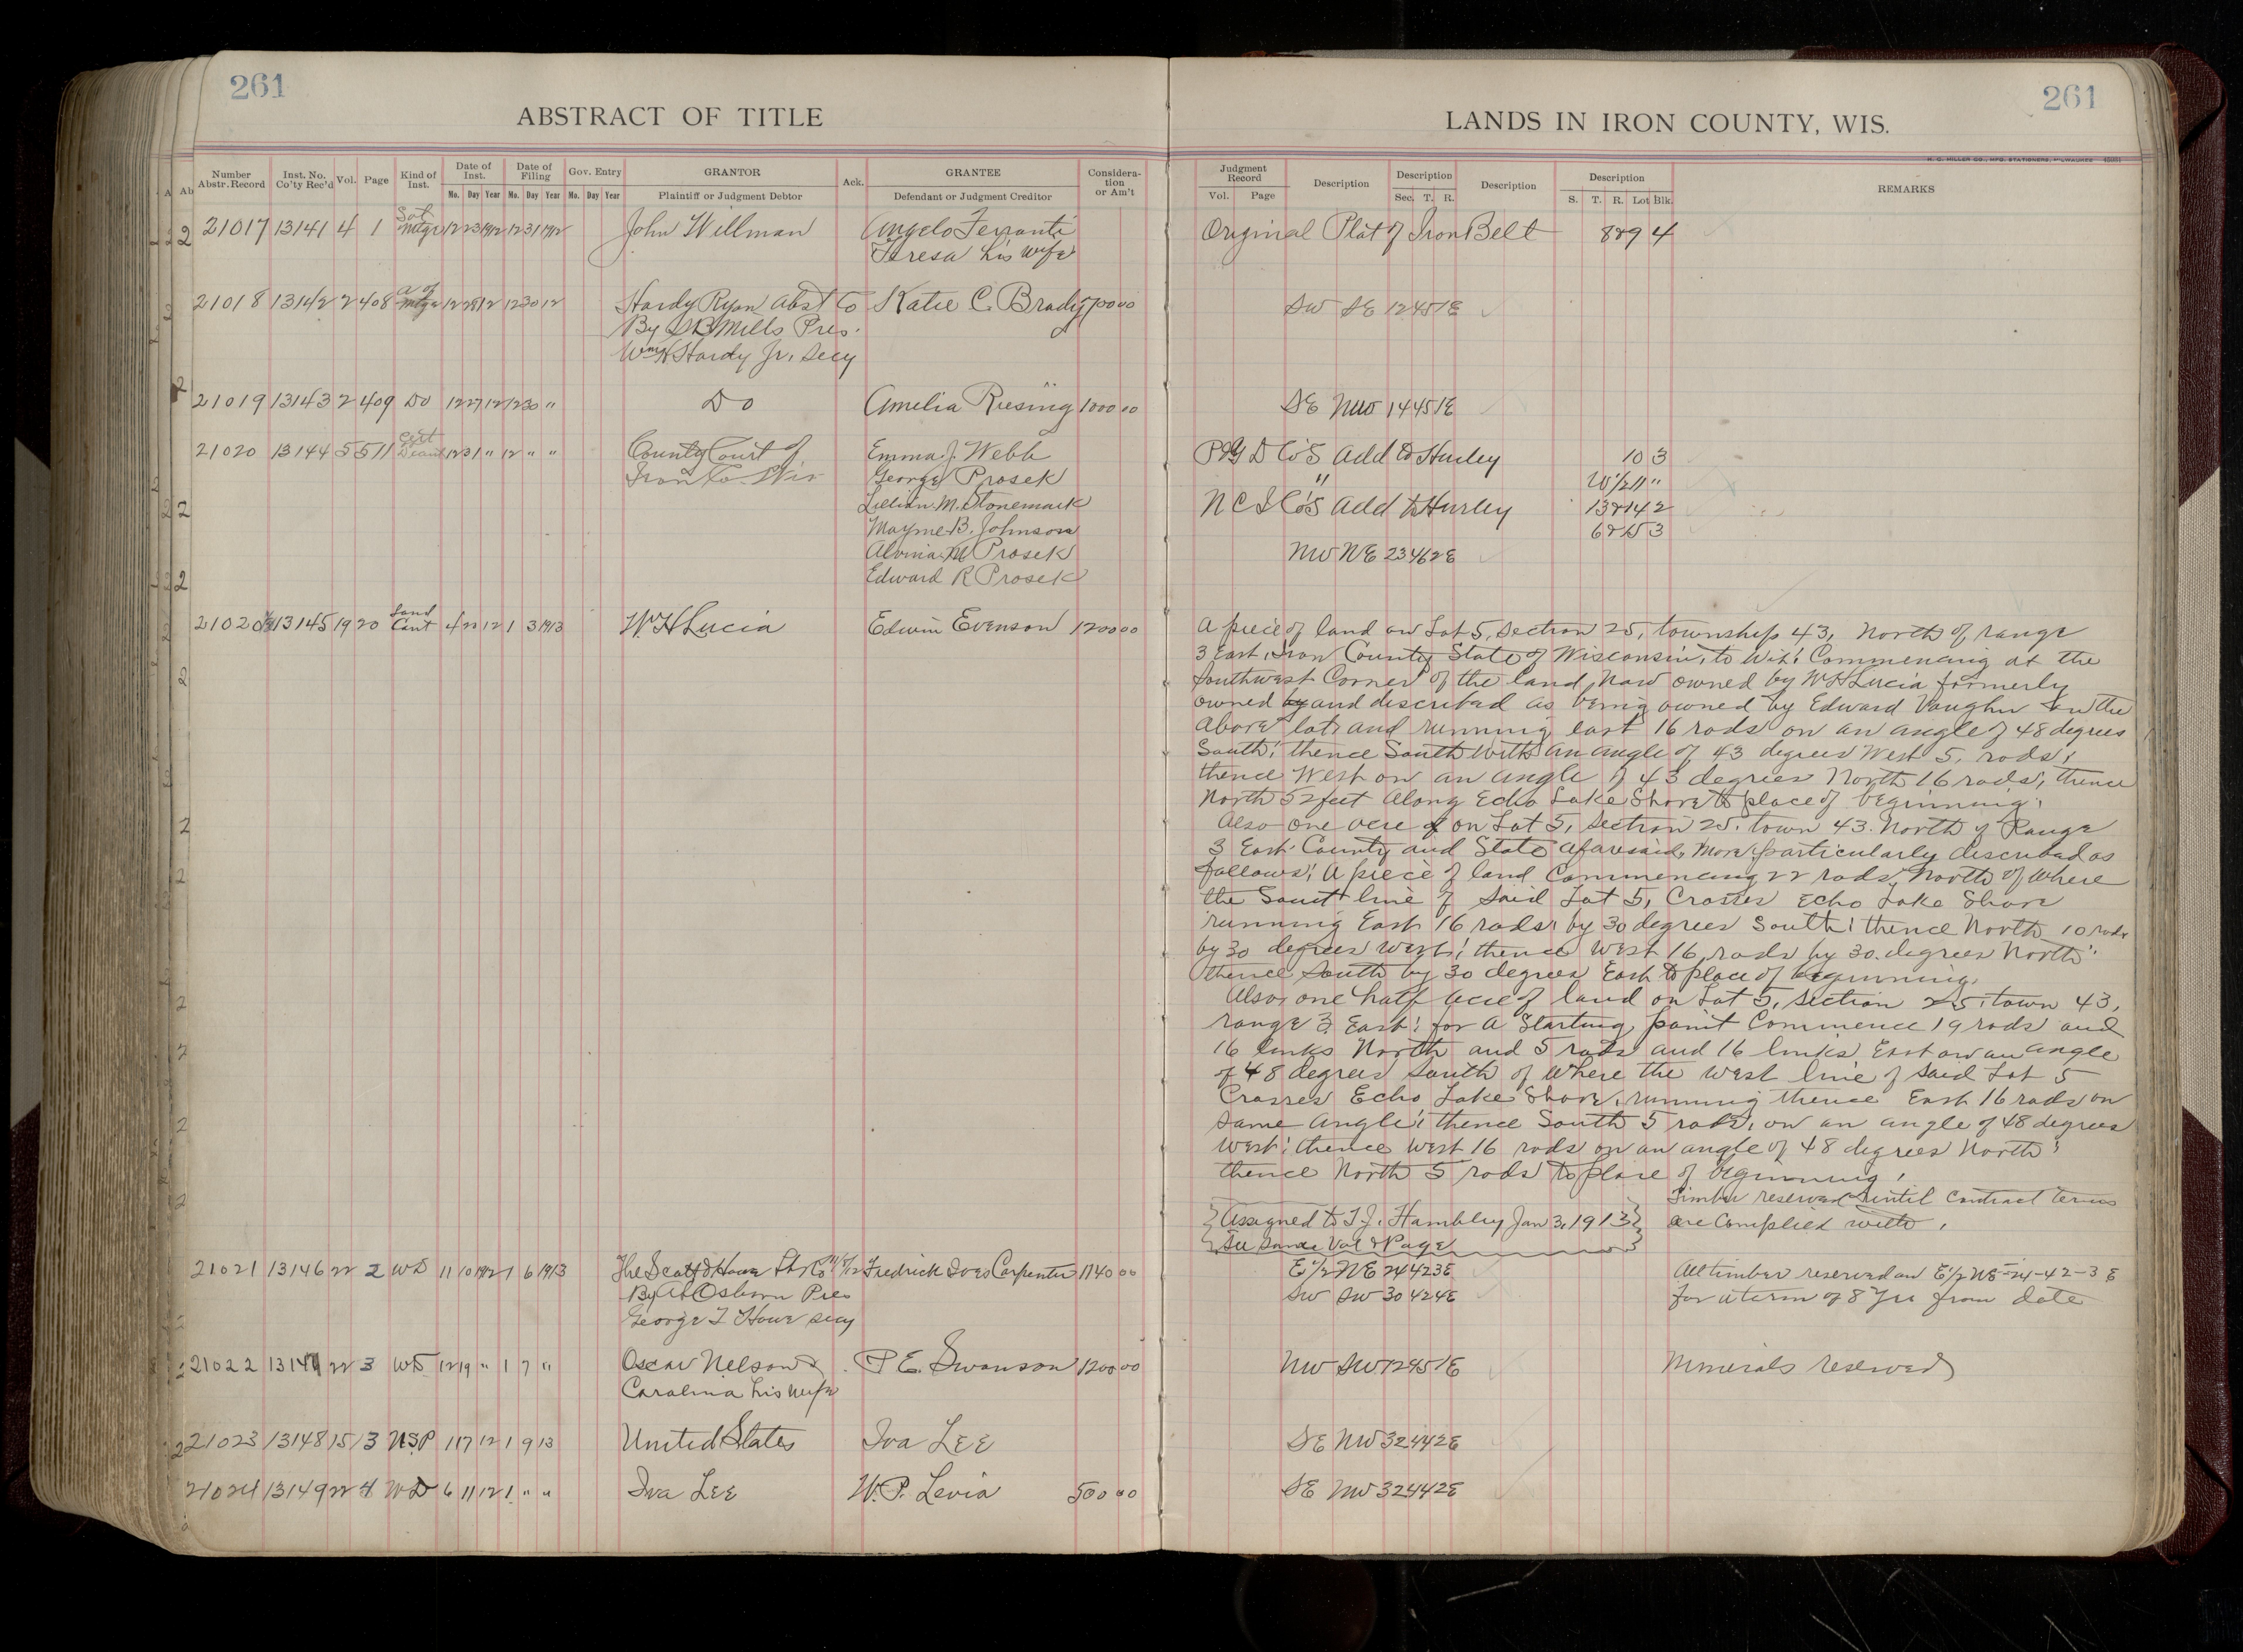 261
ABSTRACT OF TITLE
Number Abstr. Record Inst. No. Co'ty Rec'd Vol. Page Kind of Inst. Date of Inst. Date of Filing Gov. Entry GRANTOR Ack. GRANTEE Considera-tion or Am't
Mo. Day Year Mo. Day Year Mo. Day Year Plaintiff or Judgment Debtor Defendant or Judgment Creditor
21017 13141 4 1 Sat Mtge 12 23 1912 12 31 1912 John Willman Angelo Ferranti
Teresa his wife
21018 13142 2 408 A of Mtge 12 28 12 12 30 12 Hardy Ryan Abst Co Katie C. Brady 700 00
By S B Mills Pres.
Wm H Hardy Jr. Secy
21019 13143 2 409 Do 12 27 12 12 30 " Do Amelia Riesing 1000 00
21020 13144 5 511 Cert 12 31 " 12 " " County Court of Emma J. Webb
Iron Co. Wis George Prosek
Lillian M. Stonemark
Mayme B. Johnson
Alvina M Prosek
Edward R Prosek
21020½ 13145 19 20 Land Cont 4 22 12 1 3 1913 W H Lucia Edwin Evenson 1200 00
21021 13146 22 2 WD 11 10 1912 1 6 1913 The Scott & Howe Fredrick Ives Carpenter 1140 00
By A L Osborn Pres
George T Howe secy
21022 13147 22 3 WD 12 19 " 1 7 " Oscar Nelson & P. E. Swanson 1200 00
Carolina his wife
21023 13148 15 13 USP 1 17 12 1 9 13 United States Iva Lee
21024 13149 22 4 WD 6 11 12 1 " " Iva Lee W. P. Levia 500 00
261
LANDS IN IRON COUNTY, WIS.
H. G. MILLER CO., MFG. STATIONERS, MILWAUKEE
Judgment Record Description Description Description Description REMARKS
Vol. Page Sec. T. R. S. T. R. Lot Blk.
Original Plat of Iron Belt 8&9 4
SW SE 12 45 1E
SE NW 14 45 1E
P & G D Co's Add to Hurley 10 3
" W½ 11 "
N C I Co's Add to Hurley 13&14 2
6&15 3
NW NE 23 46 2E
A piece of land on Lot 5, Section 25, township 43, North of range
3 East, Iron County State of Wisconsin, to wit: Commencing at the
Southwest Corner of the land now owned by W H Lucia formerly
owned by and described as being owned by Edward Vaughn on the
above lot, and running east 16 rods on an angle of 48 degrees
South; thence South with an angle of 43 degrees West 5, rods,
thence West on an angle of 43 degrees North 16 rods, thence
North 52 feet along Echo Lake Shore to place of beginning.
Also one acre of on Lot 5, section 25, town 43 North of Range
3 East County and State aforesaid, more particularly described as
follows: A piece of land Commencing 22 rods North of where
the Sout line of said Lot 5, Crosses Echo Lake Shore
running East 16 rods, by 30 degrees South; thence North 10 rods
by 30 degrees west; thence West 16 rods by 30 degrees North;
thence South by 30 degrees East to place of beginning.
Also, one half acre of land on Lot 5, section 25, town 43,
range 3 East; for a Starting point Commence 19 rods and
16 links North and 5 rods and 16 links East on an angle
of 48 degrees South of where the West line of said Lot 5
Crosses Echo Lake Shore, running thence East 16 rods on
same angle; thence South 5 rods, on an angle of 48 degrees
West; thence West 16 rods on an angle of 48 degrees North;
thence North 5 rods to place of beginning.
Timber reserved until Contract terms
Assigned to T. J. Hambley Jan 3, 1913 are Complied with.
See same Vol & Page
E½ NE 24 42 3E All timber reserved on E½ NE-24-42-3 E
SW SW 30 42 4E for a term of 8 Yrs from date
NW SW 12 45 1E Minerals reserved
SE NW 32 44 2E
SE NW 32 44 2E